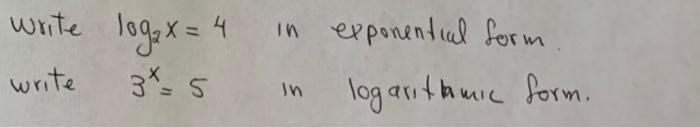 write log₂x = 4 in exponential form.
write 3ˣ = 5 in logarithmic form.